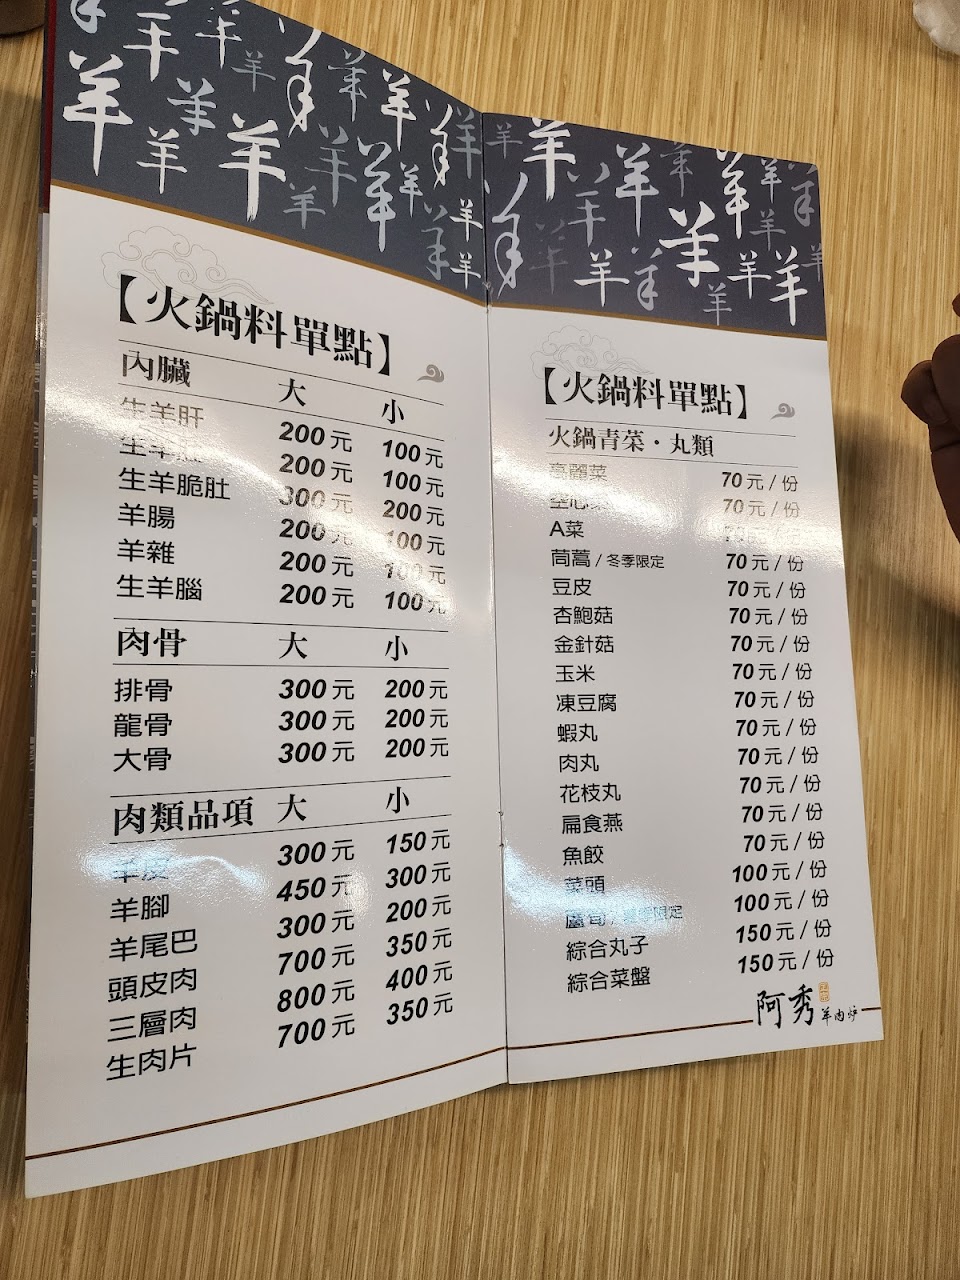 羊 羊 羊 羊 羊 羊 羊 羊 羊 羊 羊 羊 羊 羊 羊 羊 羊
【火鍋料單點】
內臟 大 小
生羊肝 200元 100元
生羊 200元 100元
生羊脆肚 300元 200元
羊腸 200元 100元
羊雜 200元 100元
生羊腦 200元 100元
肉骨 大 小
排骨 300元 200元
龍骨 300元 200元
大骨 300元 200元
肉類品項 大 小
羊皮 300元 150元
羊腳 450元 300元
羊尾巴 300元 200元
頭皮肉 700元 350元
三層肉 800元 400元
生肉片 700元 350元
【火鍋料單點】
火鍋青菜・丸類
高麗菜 70元/份
空心菜 70元/份
A菜 70元/份
茼蒿/冬季限定 70元/份
豆皮 70元/份
杏鮑菇 70元/份
金針菇 70元/份
玉米 70元/份
凍豆腐 70元/份
蝦丸 70元/份
肉丸 70元/份
花枝丸 70元/份
扁食燕 70元/份
魚餃 70元/份
菜頭 100元/份
蘆筍/夏季限定 100元/份
綜合丸子 150元/份
綜合菜盤 150元/份
阿秀羊肉爐